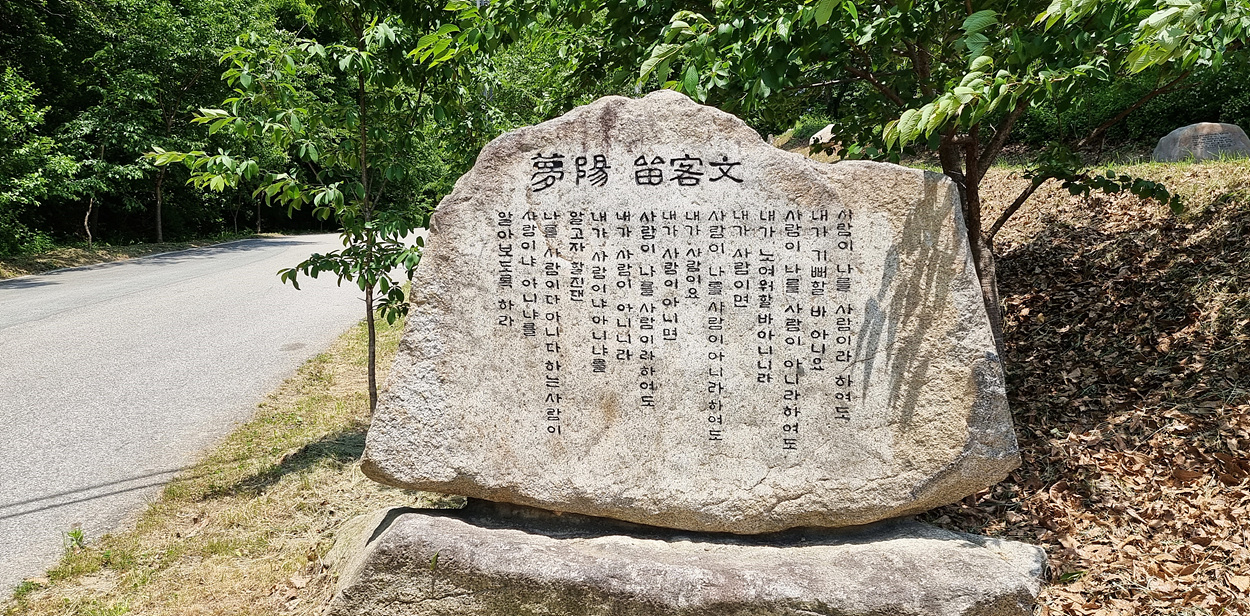 夢陽 留客文
사람이 나를 사람이라 하여도
내가 기뻐할 바 아니요
사람이 나를 사람이 아니라하여도
내가 노여워할바아니니라
내가 사람이면
사람이 나를사람이아니라하여도
내가 사람이요
내가 사람이아니면
사람이 나를사람이라하여도
내가 사람이 아니니라
내가 사람이냐아니냐를
알고자할진댄
나를 사람이다아니다하는사람이
사람이냐 아니냐를
알아보도록 하라